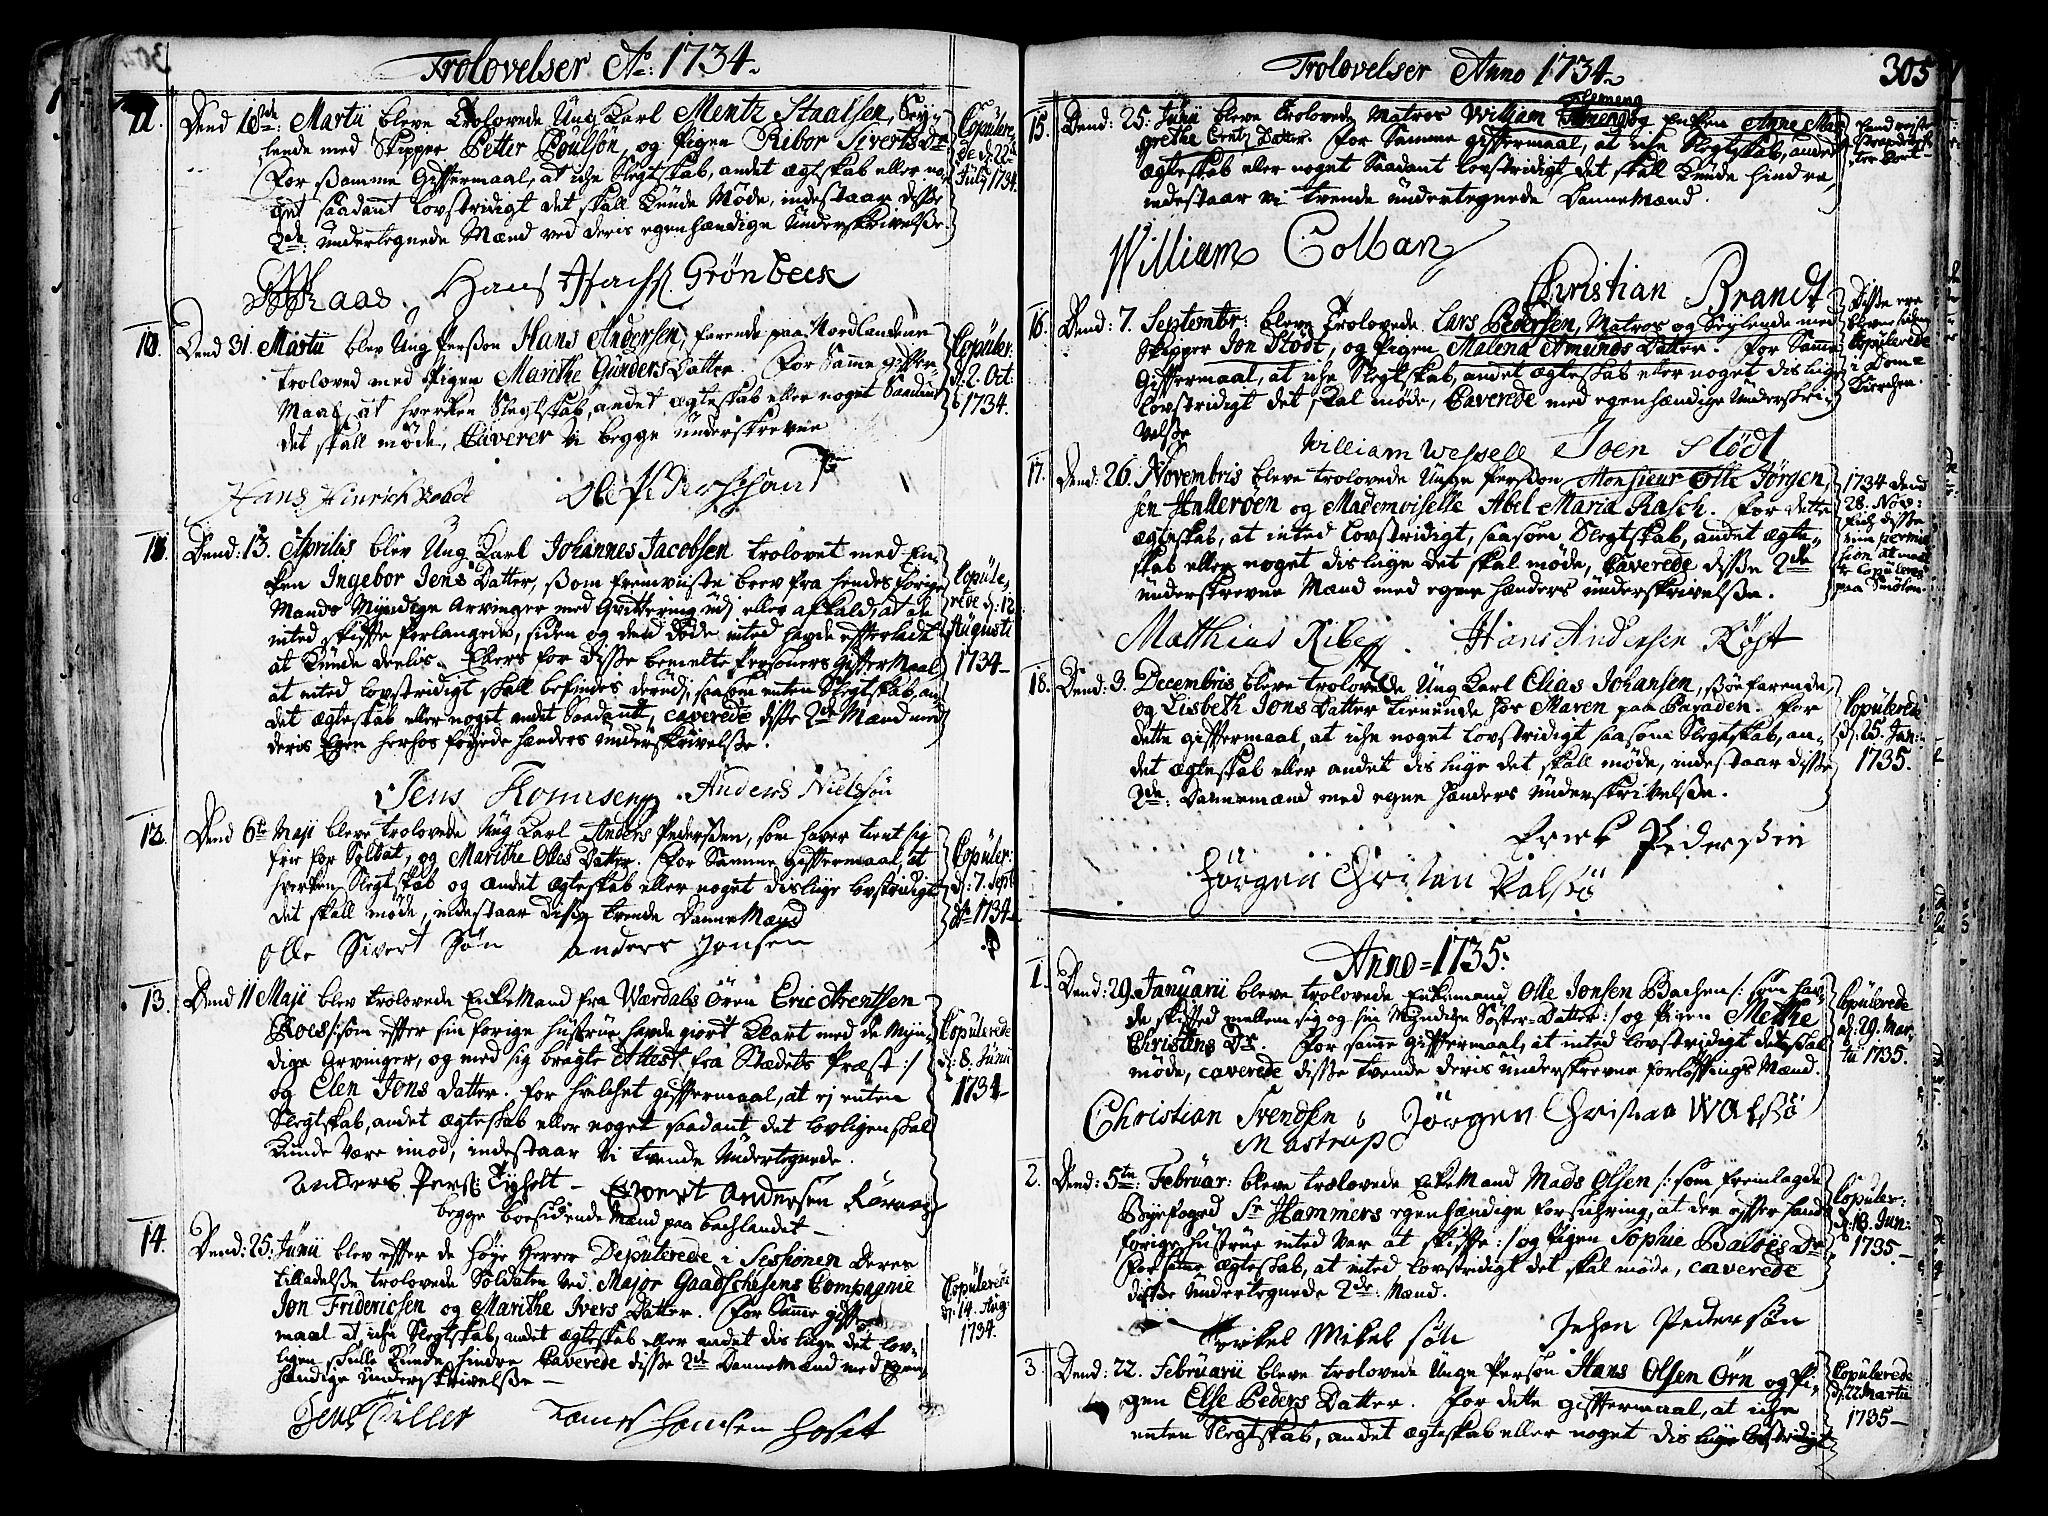 Trolovelser Ao: 1734.
11. Dend 16de: Martii bleve Trolovede Ung Karl Mentz Staalsen, Sey-
lende med Skipper Petter Poulsøn, og Pigen Ribor Siverts Dr
For Samme Giftermaal, at iche Slegtskab, andet ægteskab eller no-
get saadant lovstridigt det skall kunde Møde, indestaar disse
2de: undertegnede Mænd ved deris egenhændige Underskrivelsse.
Copulere-
de d: 22de
Julij 1734.
Hans Grønbeck
10. Dend 31. Martii blev Ung Persson Hans Andersen, farende paa Nordlandene
troloved med Pigen Marithe Gunders Datter. For Samme gifter-
Maal, at hverken Slegtskab, andet ægteskab eller noget Saadant
det skall møde, Caverer Vi begge underskrevne
Copuler:
d: 2. Oct:
1734.
Hans Hinrich
Dend: 13. Aprilis blev Ung Karl Johannes Jacobsen trolovet med En-
ken Ingebor Jens Datter, som fremviiste brev fra hendes forige
Mands Myndige Arvinger med Qvittering udj eller afkald, at de
inted skifte forlangede, siden og dend døde inted havde efterladt
at kunde deelis. Ellers for disse bemelte Personers gifterMaal
at inted lovstridigt skall befindes derudj, saasom enten Slegtskab, an-
det ægteskab eller noget andet Saadant, caverede disse 2de Mænd med
deris Egen herhos føyede hænders underskrivelsse.
Copule-
rede d: 12
Augusti
1734
Jens Anders Nielssøn
12. Dend 6te Maji bleve trolovede Ung Karl Anders Pederssen, som haver tient sig
frie for Soldat, og Marithe Olles Datter. For Samme giftermaal, at
hverken Slegtskab og andet ægteskab eller noget deslige lovstridigt
det skall møde, indestaar disse tvende Danne Mænd
Copuler:
d: 7. Sept
Ao 1734
Olle Sivert Søn anders Jonsen
13. Dend 11 Maji blev trolovede EnkeMand fra Wærdals Øren Eric Arentsen
Roes /: som efter sin forige hustrue havde giort klart med de Myn-
dige Arvinger, og med sig bragte Attest fra Stædets Præst :/
og Elen Jons Datter. For hvilchet giftermaal, at ej enten
Slegtskab, andet ægteskab eller noget saadant det lovligen skal
kunde være imod, indestaar Vi tvende Undertegnede.
Copulerede
d: 8. Junii
1734
Anders Pers: Tyholt Ewert Andersen
begge boesidende Mænd paa bachlandet
14. Dend: 25. Junii blev efter de høye Herrer Deputerede i Sessionen Deres
tilladelsse trolovede Soldaten ved Major Compagnie
Jon Friderichsen og Marithe Ivers Datter. For Samme gifter-
maal at iche Slegtskab, andet ægteskab eller andet des lige det lov-
ligen skulle kunde hindre Caverede disse 2de DanneMænd med Egen-
hændige Underskrivelsse
Copulerede
d: 14. Aug:
1734.
Jens
Trolovelser Anno 1734. 305
15. Dend: 25. Junii bleve Trolovede Matros William Flemeng og Enken Anne Mar-
grethe Datter. For Samme giftermaal, at iche Slegtskab, andet
ægteskab eller noget saadant lovstridigt det skall kunde hindre,
indestaar vi tvende undertegnede DanneMænd.
William Colban
Christian Brandt
16. Dend: 7. Septembr: bleve Trolovede Lars Pedersen, Matros og Seylende med
Skipper Jon Stødt, og Pigen Malena Amunds Datter. For Samme
Giftermaal, at iche Slegtskab, andet ægteskab eller noget des lige
lovstridigt det skal møde, Caverede med egenhændige Underskri-
velsse
Disse ere
bleven siden
Copulerede
i Dom-
Kirchen.
William Wessell Joen Stødt
17. Dend: 26. Novembris bleve trolovede Unge Persson Monsieur Olle Jørgen-
sen Ankeroen og Mademoiselle Abel Maria Rasch. For dette
ægteskab, at inted lovstridigt, saasom Slegtskab, andet ægte-
skab eller noget deslige det skal møde, Caverede disse 2de
underskrevne Mænd med egne hænders underskrivelsse.
1734 dend
28. Nov:
fich disse
permis-
sion at maa-
te Copuleres
paa Smølen.
Mathias Riber Hans Andersen Røst
18. Dend: 3. Decembris bleve trolovede Ung Karl Elias Johansen, Søefarende,
og Lisbeth Jons Datter tienende hos Maren paa Paraden. For
dette giftermaal, at iche noget lovstridigt saasom Slegtskab, an-
det ægteskab eller andet des lige det skall møde, indestaar disse
2de: Dannemænd med egne hænders underskrivelsse.
Copulerede
d: 25. Jan:
1735.
Pederssen
Jörgen Christian
Anno 1735.
1. Dend: 29. Januarii bleve trolovede Enkemand Olle Jonsen Bachen /: som hav-
de skifted mellem sig og sin Myndige Søster-Datter :/ og Pigen Methe
Christens Dr. For samme giftermaal, at inted lovstridigt det skal
møde, caverede disse tvende deris underskrevne forlofnings Mænd.
Copulerede
d: 29. Mar-
tii 1735.
Christian Svendsen Jørgen Christian Walssø
Mastrup
2. Dend: 5te: Februar: bleve trolovede EnkeMand Mads Olsen /: som fremlagde
Byefoged Sr Hammers egenhændige forsichring, at der efter hands
forige hustrue inted var at skifte :/ og Pigen Sophie Dr
For samme ægteskab, at inted lovstridigt det skal møde, caverede
disse Undertegnede 2de: Mænd.
Copuler:
d: 13. Jun:
1735
Mikel søn Johan Pedersøn
3. Dend: 22. Februarii bleve trolovede Unge Persøn Hans Olsen Örn og Pi-
gen Else Peders Datter. For dette giftermaal, at iche
enten Slegtskab, andet ægteskab eller noget des lige lovstridigt
Copulerede
d: 22 Martii
1735